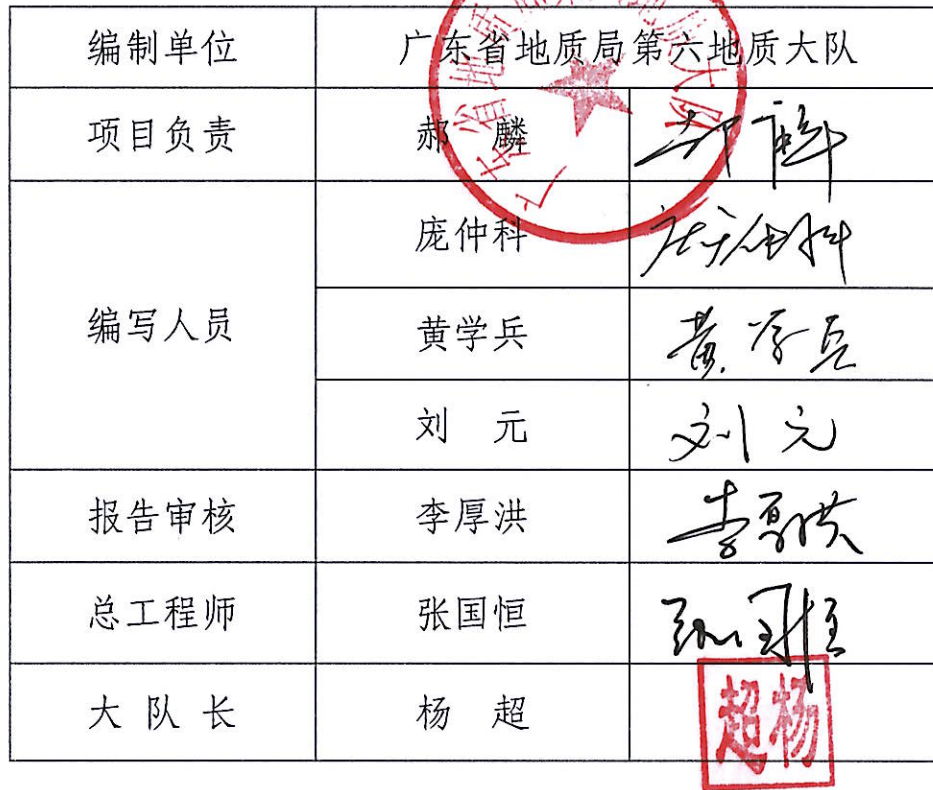 编制单位 广东省地质局第六地质大队
项目负责 郝 麟 郝麟
庞仲科 庞仲科
编写人员
黄学兵 黄学兵
刘 元 刘元
报告审核 李厚洪 李厚洪
总工程师 张国恒 张国恒
大 队 长 杨 超 超杨